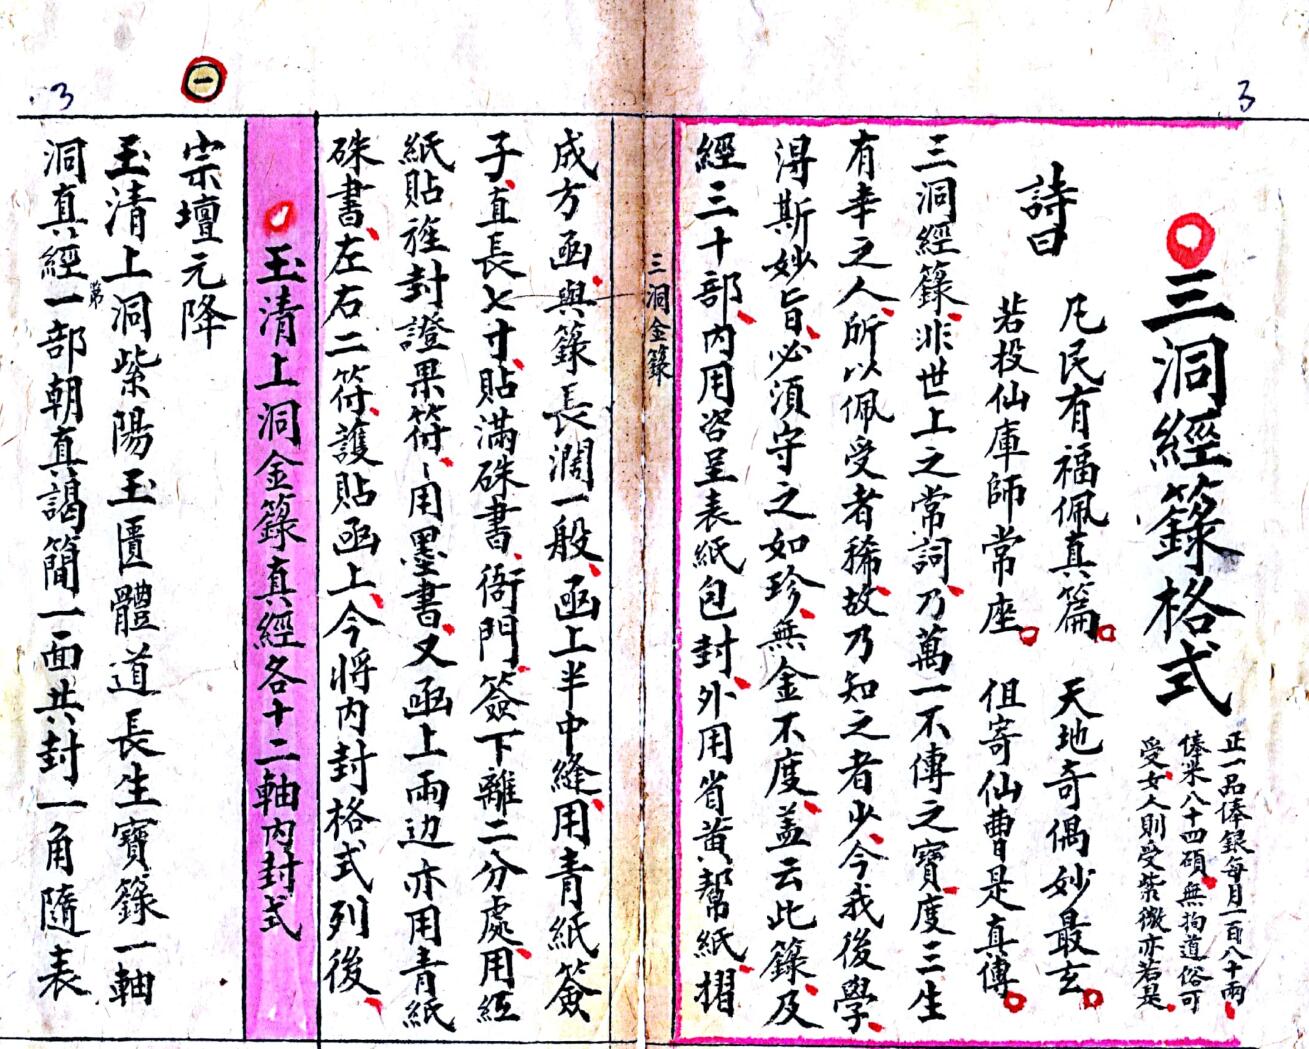 3
三洞經籙格式
正一品俸銀每月一百八十兩
俸米八十四碩無拘道俗可
受女人則受紫微亦若是
詩曰
凡民有福佩真篇 天地奇偶妙最玄
若投仙庫師常座 但寄仙曹是真傳
三洞經籙非世上之常詞乃萬一不傳之寶度三生
有幸之人所以佩受者稀故乃知之者少今我後學
淂斯妙旨必須守之如珍無金不度盖云此籙及
經三十部內用咨呈表紙包封外用省黃幫紙摺
三洞金籙
成方函與籙長濶一般函上半中縫用青紙簽
子直長七寸貼滿硃書衙門簽下離二分處用經
紙貼旌封證果符用墨書又函上兩边亦用青紙
硃書左右二符護貼函上今將內封格式列後
一
3
玉清上洞金籙真經各十二軸內封式
宗壇元降
玉清上洞紫陽玉匱體道長生寶籙一軸
洞真經第一部朝真謁簡一面共封一角隨表